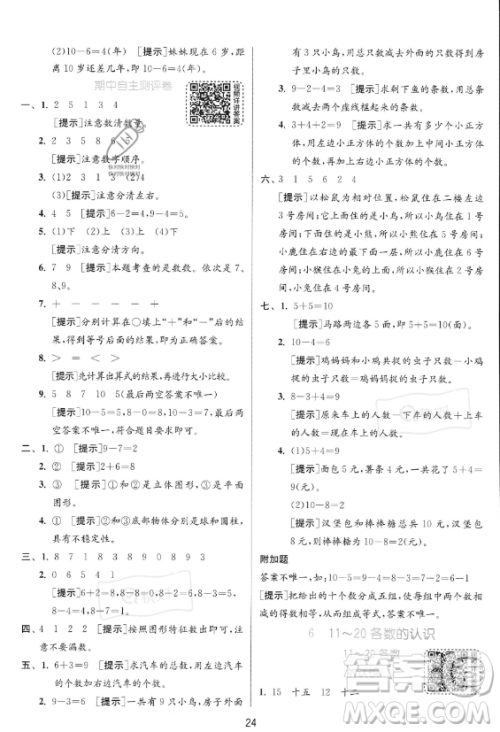 (2)10-6=4(年) [提示]妹妹现在 6 岁,
距离 10 岁还差几年,即 10-6=4(年)。
期中自主测评卷
视频详讲答案
一、1. 2 5 1 3 4
[提示]注意数清数量。
2. 2 3 5 8 6
[提示]注意数字顺序。
3. (1)2 3 1 (2)3 2 4
(3)[提示]注意分清左右。
4. 4 5 [提示]6-2=4,9-4=5。
5. (1)下 (2)下
[提示]注意分清方向。
6. 7 7 9 [提示]本题考查的是数数。依次是 7、
8、9。
7. + - + -
[提示]分别计算在○填上“+”和“-”后的
得数,得到等号后面的数即为正确答案。
8. > < = >
[提示]先计算出算式的结果,再进行大小比较。
9. 9 8 10 10 5 5(最后两空答案不唯一)
[提示]10-5=5,5+5=10,最后两空答案
不唯一,符合题目要求即可。
二、1. ① [提示]9-7=2
2. ③ [提示]2+6=8
3. ② [提示]①和③是立体图形,②是平面
图形。
4. ① [提示]②和③底部物体分别是球和圆柱,
具有不稳定性。
三、1. 8 7 1 8 3 8 9 0 8 9 3
2. 0 6 5 4 1
[提示]6+2=8,8+0=8,7+1=8,5+
3=8,4+4=8,1+7=8
四、4 1 2 2 [提示]按照图形特征数出即可。
五、1. 6+3=9 [提示]求汽车的总数,用左边汽车
的个数加上右边汽车的个数。
2. 9-6=3 [提示]一共有 9 只小鸟,房子外面
有 6 只小鸟,求房子里面有几只小鸟,用小
鸟的总只数减去房子外面的只数。
3. 9-2-4=3 [提示]求剩下鱼的只数,用总
只数减去两个虚线框里减去的只数。
4. 3+4+2=9 [提示]求一共有多少个小正方
体,用左边小正方体的个数加上中间小正方体
的个数,再加上右边小正方体的个数。
六、3 1 5 6 2 4
[提示]以松鼠为相对位置,松鼠住在二楼左边
3 号房间;它上面住的是小鸟,所以小鸟住在 1 号
房间;它下面住的是小熊,所以小熊住在 5 号房
间;小鹿住在小熊右边,所以小鹿住在 6 号房
间;小猴住在小鸟右边,所以小猴住在 2 号房
间;小兔住在小猴下面,所以小兔住在 4 号房间。
七、1. 5+5=10
[提示]马路两边各 5 棵,所以用加法。
2. 10-4=6
[提示]鸡妈妈和小鸡共捉的虫子只数-小鸡
捉的虫子只数=鸡妈妈捉的虫子只数。
3. 8-2+3=9
[提示]原来车上的人数-下车的人数+上车
的人数=现在车上的人数。
4. (1)5+4=9
[提示]面包 5 元,薯条 4 元,一共 5+4=
9(元)。
(2)10-8=2
[提示]汉堡包和棒棒糖总共 10 元,汉堡包 8
元,所以棒棒糖 10-8=2(元)。
附加题
答案不唯一,如 10-5=9-4=8-3=7-2=6-1
[提示]把给出的十个数分成五组,使每组的两个数相
减的得数相同,从而组成等式,答案不唯一。
6 11~20 各数的认识
11~20 各数
1. 15 十五 12 十二
24
答案圈
MXQE.COM